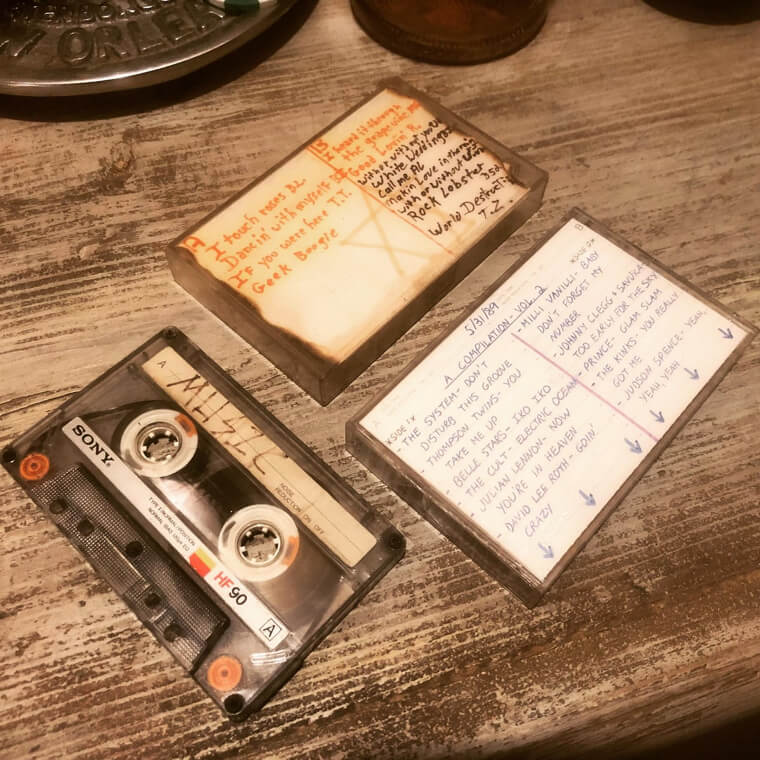 M ORLEA
A
I touch roses B.L.
Dancin' with myself
If you were here T.T.
Geek Boogie
B
I heard it through
the grapevine
Good Lovin' R.
with or without you
White Wedding
Call me AL
Makin Love in the
with or without
Rock Lobster
World Destruct
T.Z.
5/31/89
A COMPILATION - VOL. 2
<SIDE 1>
- THE SYSTEM - DON'T
DISTURB THIS GROOVE
- THOMPSON TWINS - YOU
TAKE ME UP
- BELLE STARS - IKO IKO
- THE CULT - ELECTRIC OCEAN
- JULIAN LENNON - NOW
YOU'RE IN HEAVEN
- DAVID LEE ROTH - GOIN'
CRAZY
B
<SIDE 2>
- MILLI VANILLI - BABY
DON'T FORGET MY
NUMBER
- JOHNNY CLEGG & SAVUKA
TOO EARLY FOR THE SKY
- PRINCE - GLAM SLAM
- THE KINKS - YOU REALLY
GOT ME
- JUDSON SPENCE - YEAH,
YEAH, YEAH
A
MUSIC
NOISE
REDUCTION ON OFF
SONY
HF90
A